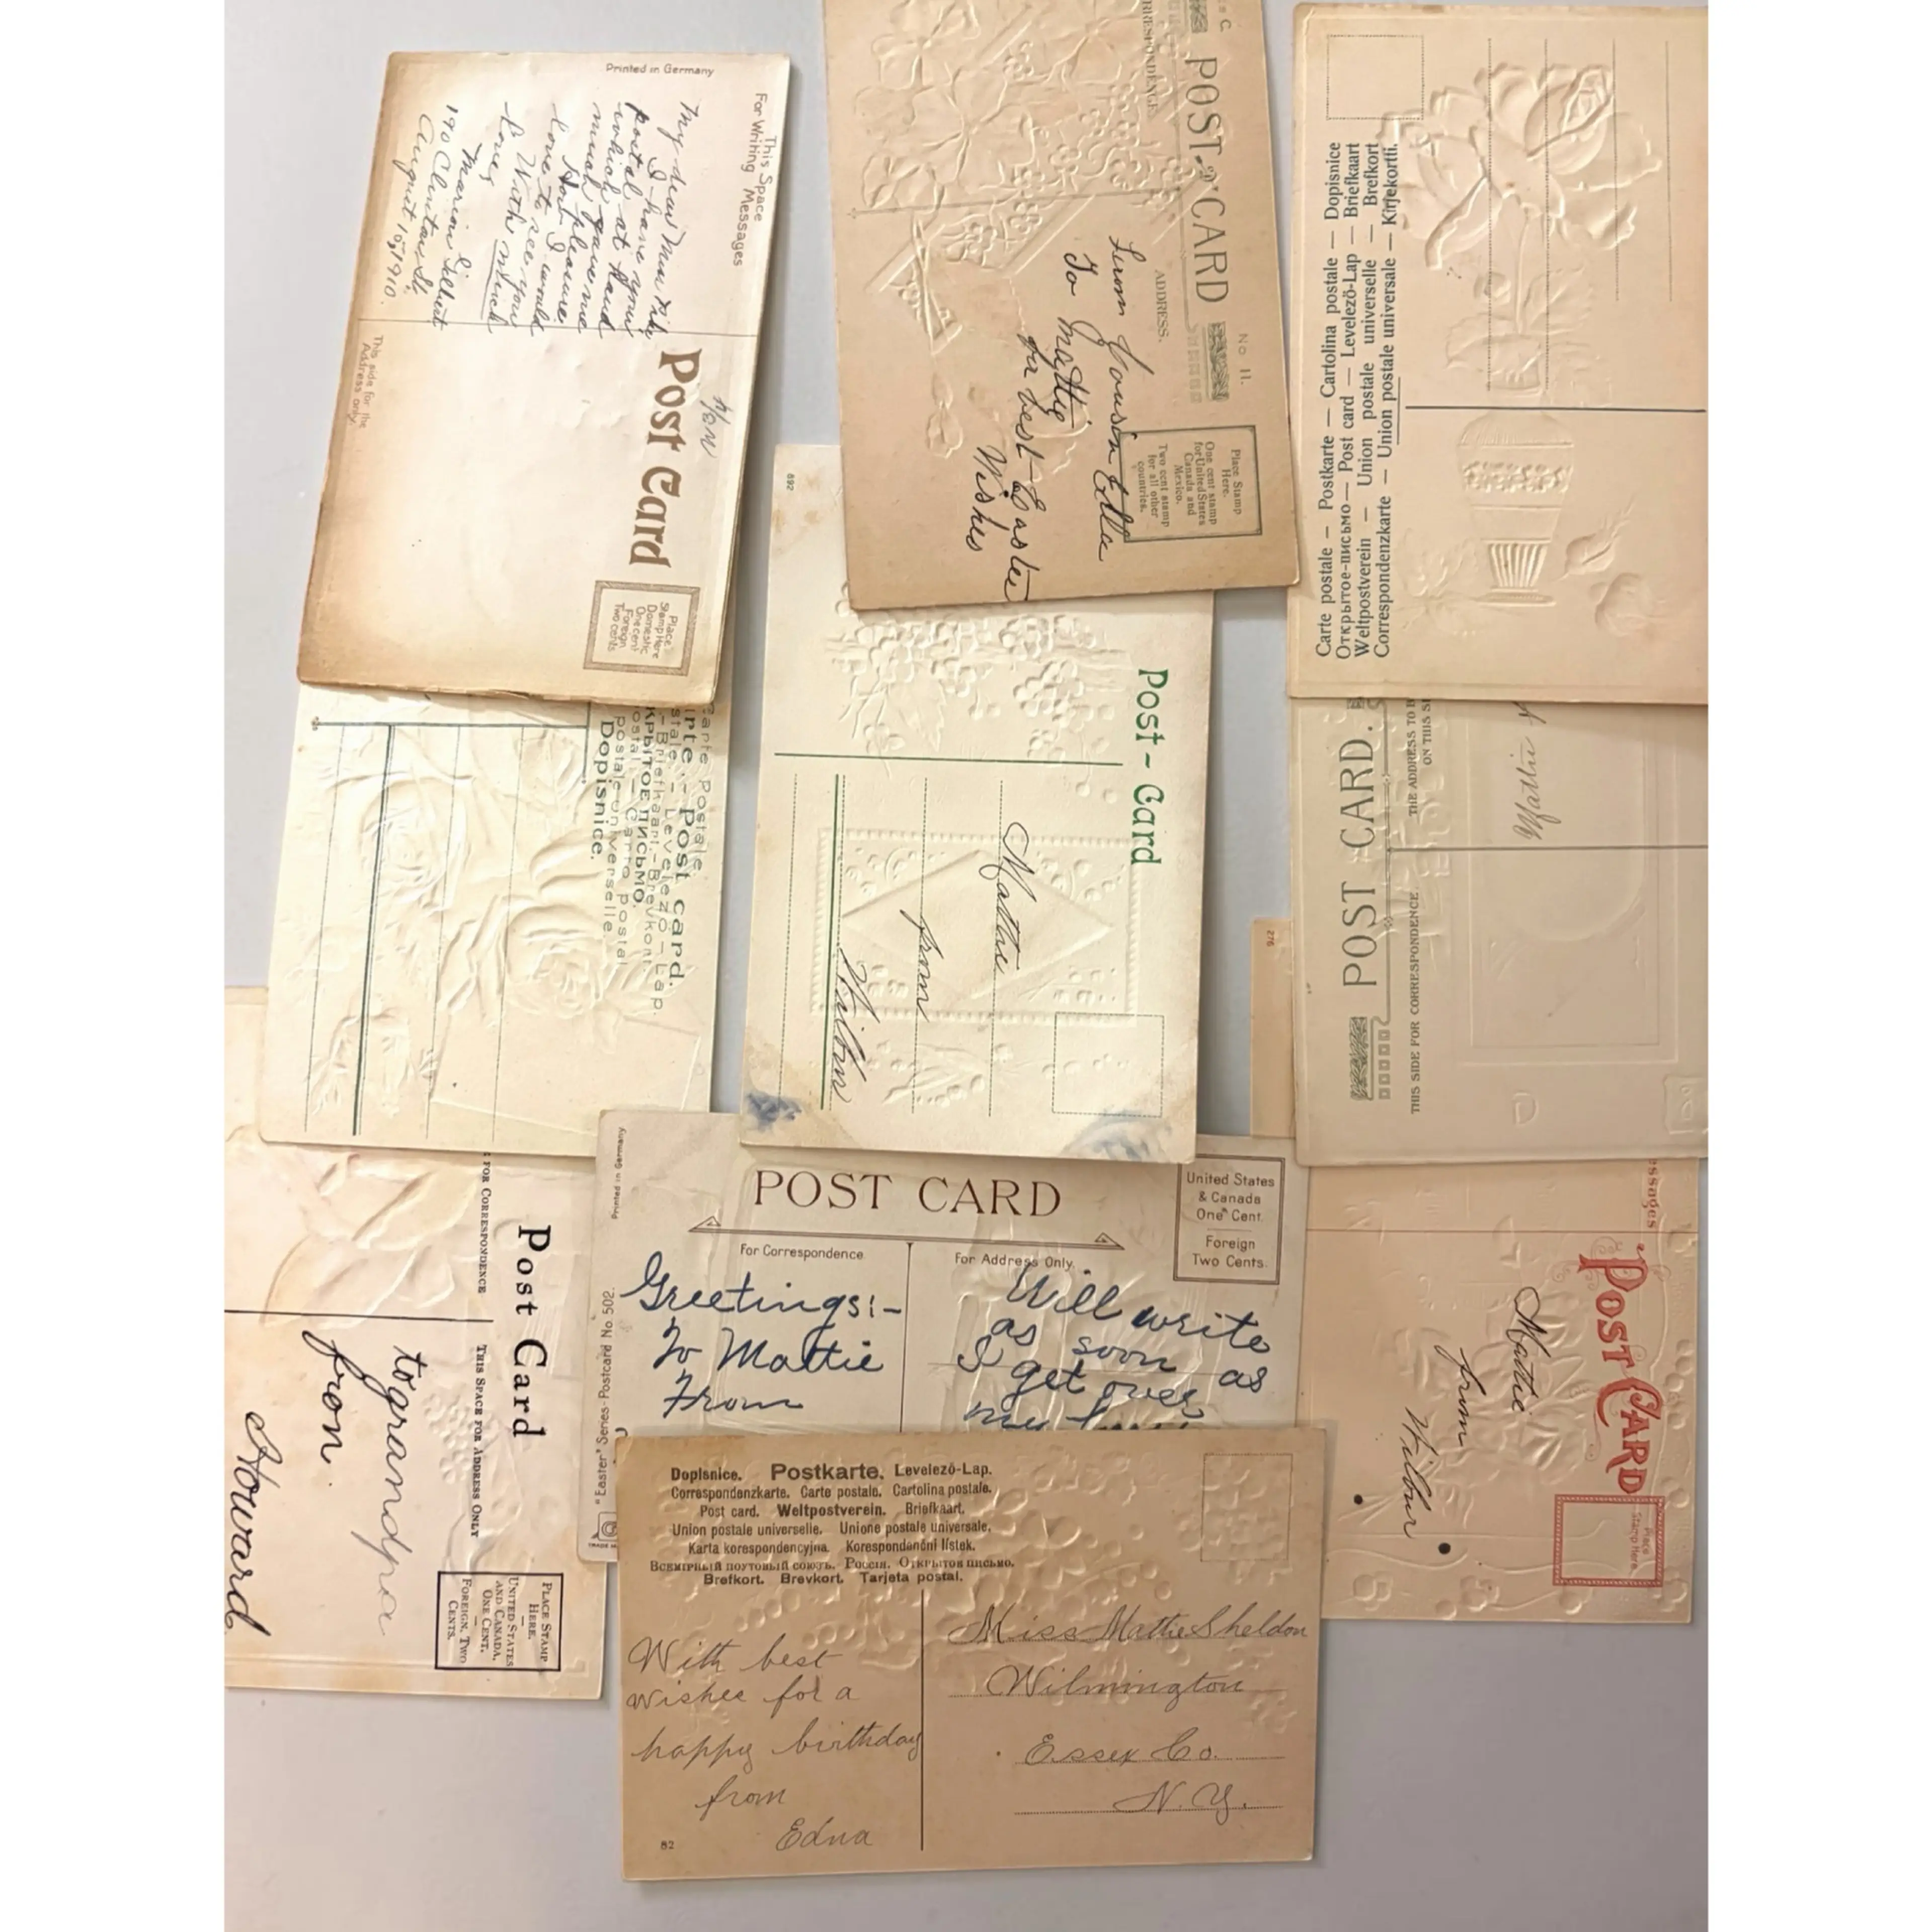 Printed in Germany
This Space
For Writing Messages
My dear
I have your
postal
which at hand
much gave me
pleasure
How I would
love to see you
With much
love,
Marion Gilbert
190 Clinton St.
August 15, 1910.
This side for the
Address only.
Post Card
Place
Stamp Here
Domestic
One cent
Foreign
Two cents
POST CARD
No 11.
ADDRESS.
From Cousin Edla
To Mattie
for best Easter
Wishes
Place Stamp
Here.
One cent stamp
for United States
Canada and
Mexico.
Two cent stamp
for all other
countries.
Carte postale – Postkarte – Cartolina postale – Dopisnice
Открытое-письмо – Post card – Levelező-Lap – Briefkaart
Weltpostverein – Union postale universelle – Brefkort
Correspondenzkarte – Union postale universale – Kirjekortti.
Carte Postale.
Post Card.
Levelező-Lap.
Briefkaart.-Brevkort.
Dopisnice.
692
Post-Card
Mattie
from
Wilbur
POST CARD.
THE ADDRESS TO
ON THIS
THIS SIDE FOR CORRESPONDENCE.
Mattie
276
FOR CORRESPONDENCE
THIS SPACE FOR ADDRESS ONLY
Post Card
to grandpa
from
Howard
PLACE STAMP
HERE.
UNITED STATES
AND CANADA,
ONE CENT.
FOREIGN, TWO
CENTS.
Printed in Germany
"Easter" Series-Postcard No. 502.
POST CARD
For Correspondence
For Address Only.
United States
& Canada
One Cent.
Foreign
Two Cents.
Greetings:-
To Mattie
From
Will write
as soon as
I get over
my
POST CARD
Mattie
from
Wilbur
Place
Stamp Here
Dopisnice. Postkarte. Levelező-Lap.
Correspondenzkarte. Carte postale. Cartolina postale.
Post card. Weltpostverein. Briefkaart.
Union postale universelle. Unione postale universale.
Karta korespondencyjna. Korespondenční lístek.
Всемірный почтовый союзъ. Россія. Открытое письмо.
Brefkort. Brevkort. Tarjeta postal.
With best
wishes for a
happy birthday
from
Edna
82
Miss Mattie Sheldon
Wilmington
Essex Co.
N.Y.